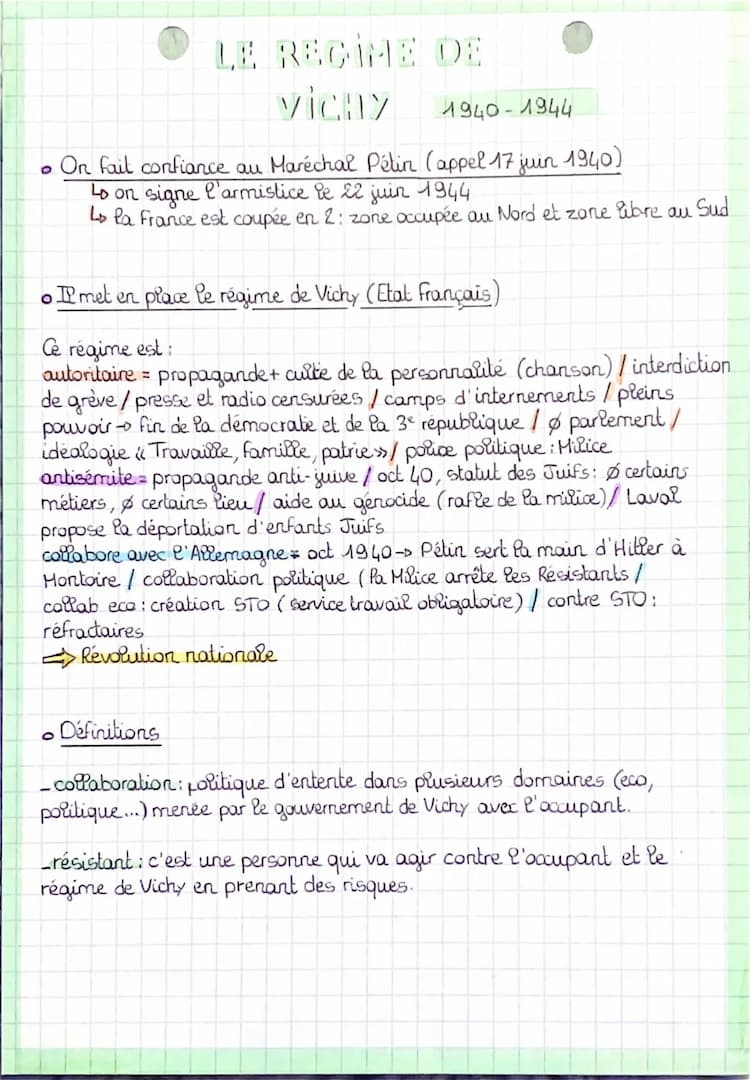 LE REGIME DE
VICHY 1940-1944
On fait confiance au Maréchal Pétin (appel 17 juin 1940)
↳ on signe l'armistice le 22 juin 1944
↳ la France est coupée en 2 : zone occupée au Nord et zone libre au Sud
Il met en place le régime de Vichy (Etat Français)
Ce régime est :
autoritaire = propagande + culte de la personnalité (chanson) / interdiction
de grève / presse et radio censurées / camps d'internements / pleins
pouvoir → fin de la démocratie et de la 3e république / ø parlement /
idéologie « Travaille, famille, patrie » / police politique : Milice
antisémite = propagande anti-juive / oct 40, statut des Juifs : ø certains
métiers, ø certains lieu / aide au génocide (rafle de la milice) / Laval
propose la déportation d'enfants Juifs
collabore avec l'Allemagne = oct 1940 → Pétin sert la main d'Hitler à
Montoire / collaboration politique (la Milice arrête les Résistants /
collab eco : création STO (service travail obligatoire) / contre STO :
réfractaires
⇒ Révolution nationale
Définitions
- collaboration : politique d'entente dans plusieurs domaines (eco,
politique...) menée par le gouvernement de Vichy avec l'occupant.
- résistant : c'est une personne qui va agir contre l'occupant et le
régime de Vichy en prenant des risques.